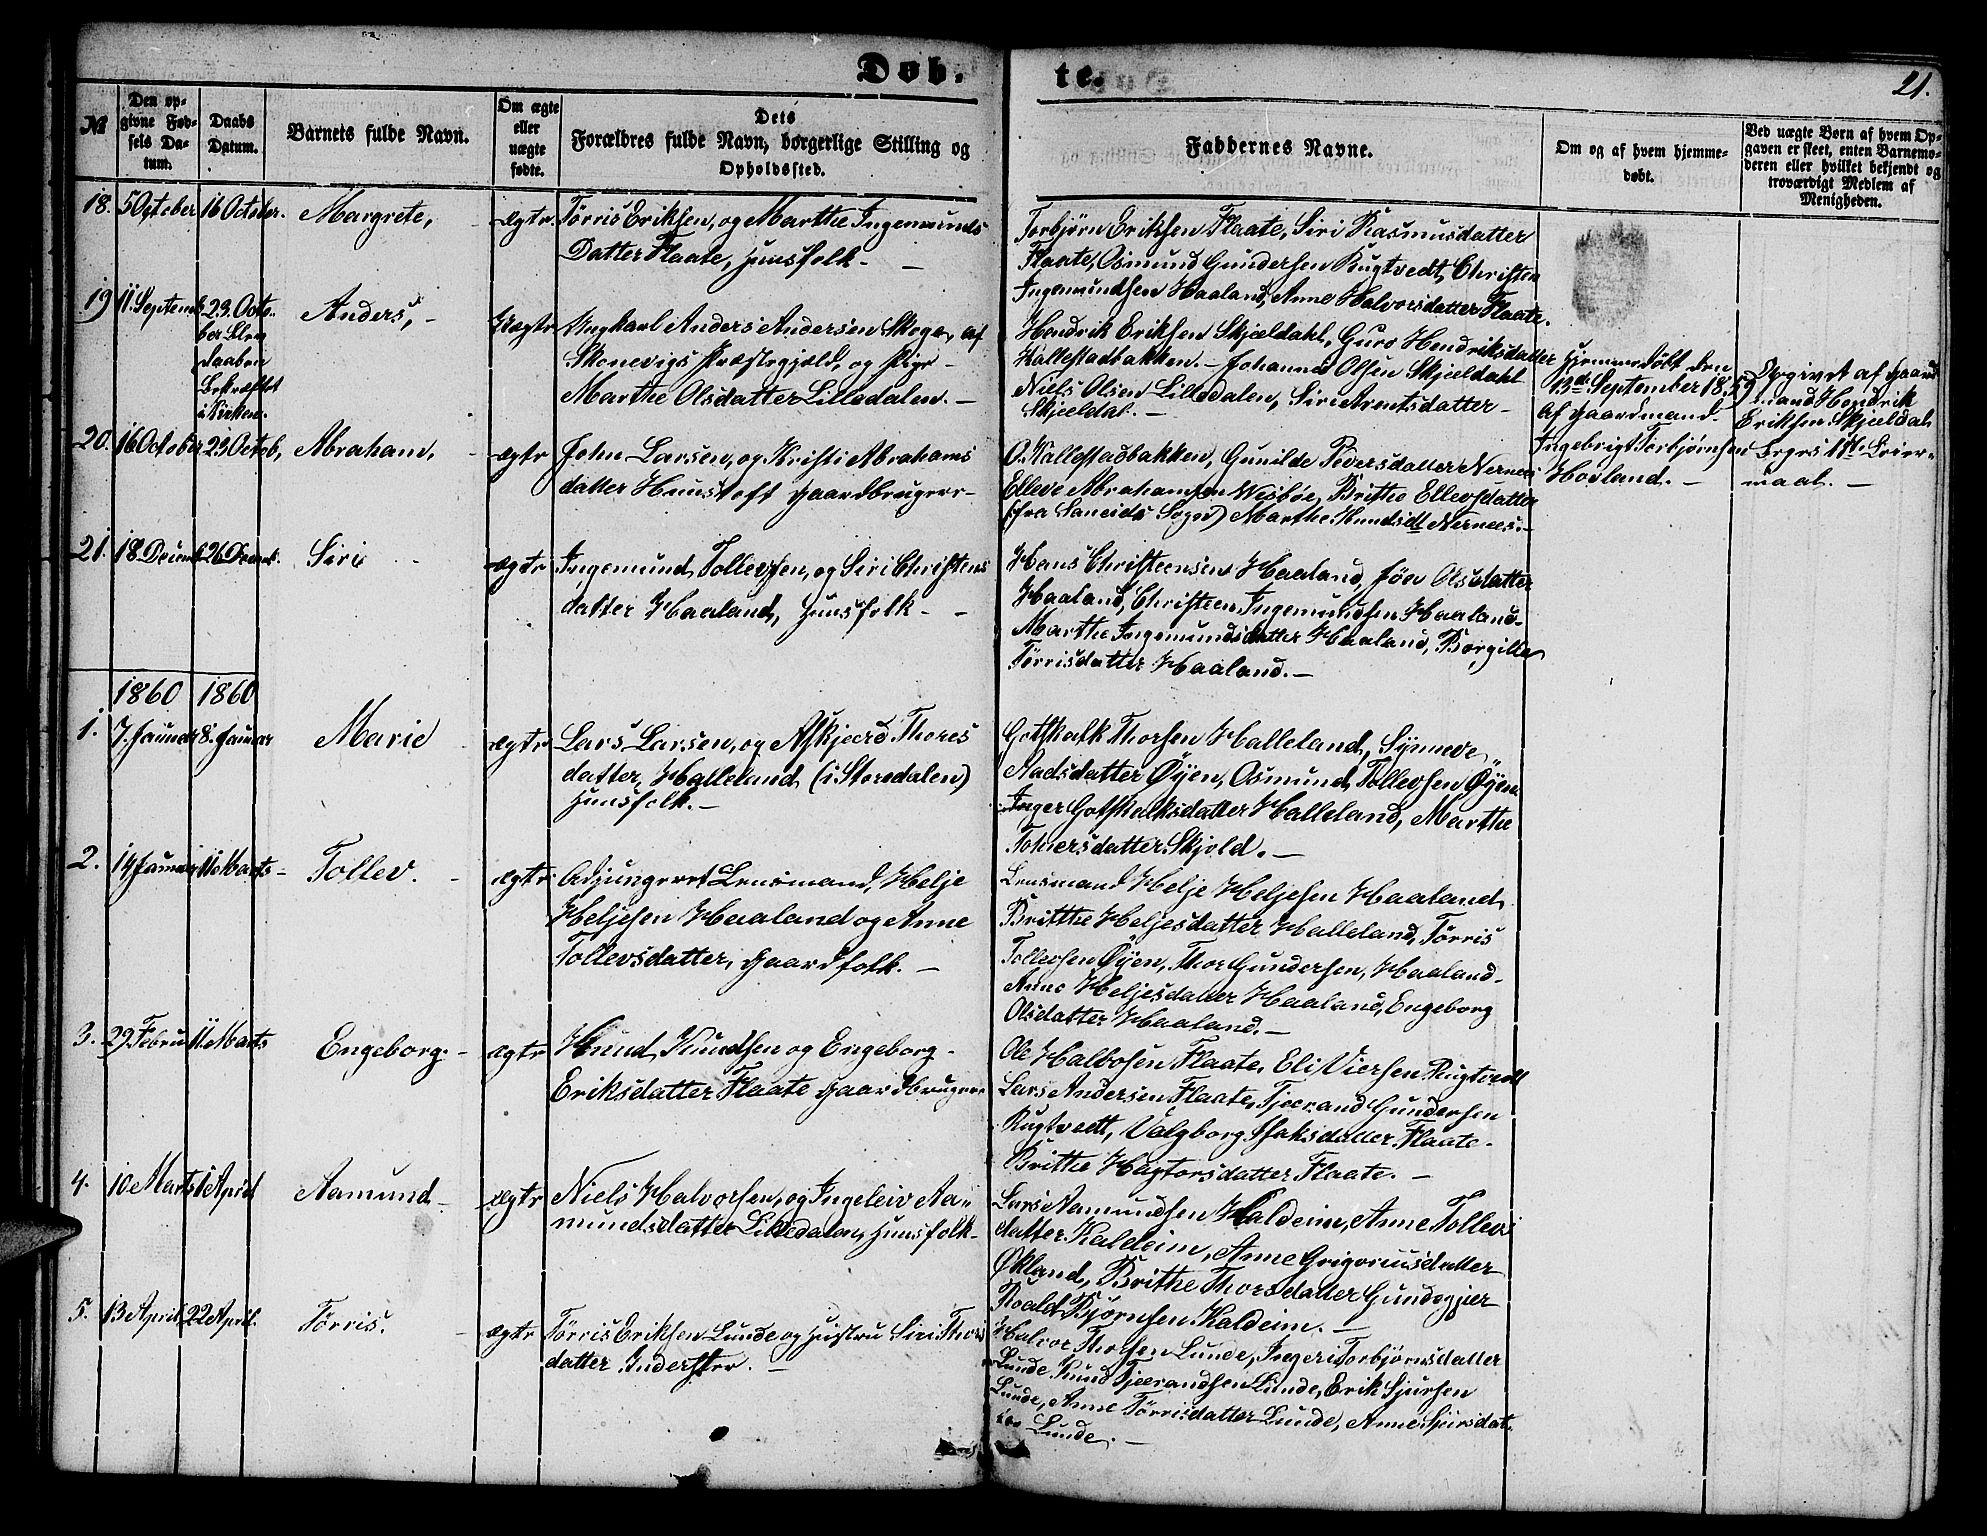 Døb.
te.
21.
№
Den op-
givne Fød-
sels Da-
tum.
Daabs
Datum.
Barnets fulde Navn.
Om ægte
eller
uægte
fødte.
Dets
Forældres fulde Navn, borgerlige Stilling og
Opholdssted.
Faddernes Navne.
Om og af hvem hjemme-
døbt.
Ved uægte Børn af hvem Op-
gaven er skeet, enten Barnemo-
deren eller hvilket bekjendt og
troværdigt Medlem af
Menigheden.
18. 5 October 16 October. Margrete, ægte. Tørris Eriksen, og Marthe Ingemunds
Datter Flaate, Huusfolk. —
Torbjørn Eriksen Flaate, Siri Rasmusdatter
Flaate, Osmund Gundersen Rugtvedt, Christen
Ingemundsen Haaland, Anne Halvorsdatter Flaate.
19 11. Septemb. 23. Octo-
ber blev
Daaben
Bekræftet
i Kirken.
Anders, — Uægte Ungkarl Anders Andersen Skoge, af
Skonevigs Præstegjeld, og Pige
Marthe Olsdatter Lilledalen. —
Hendrik Eriksen Skjældahl, Guro Hendriksdatter
Kallestadbakken. — Johannes Olsen Skjeldahl
Niels Olsen Lilledalen, Siri Arentsdatter
Skjeldal. —
Hjemmedøbt den
12de September 1859
af Gaardmand
Ingebrigt Torbjørnsen
Hooland. —
Opgivet af Gaard
mand Hendrik
Eriksen Skjeldal
Begges 1ste Leier-
maal. —
20. 16 October 23 Octob, Abraham, ægte John Larsen, og Kristi Abrahams
datter Huustoft Gaardbrugere
O. Kallestadbakken, Gunilde Peersdatter Nernees
Elleve Abrahamsen Wesbøe, Brithe Ellevsdatter
(fra Saneids Sogn) Marthe Knudsdt Nernees. —
21. 18 Decemb. 26 Decemb. Siri ægte Ingemund Tollevsen, og Siri Christens
datter Haaland, Huusfolk —
Hans Christensen Haaland, Olsdatter
Haaland, Christeen Ingemundsen Haaland
Marthe Ingemundsdatter Haaland, Borgille
Tørrisdatter Haaland. —
1860 1860
1. 7. Januar 8. Januar Marie ægte Lars Larsen, og Askjærd Thores
datter Halleland (i Storedalen)
Huusfolk. —
Gotskalk Thorsen Halleland, Synneve
Aadsdatter Øyen, Osmund Tollevsen Øyen
Inger Gotskalksdatter Halleland, Marthe
Tolmersdatter Skjold. —
2. 14 Januar 11 Marts — Tollev. ægte Adjungeret Lensmand, Helje
Heljesen Haaland og Anne
Tollevsdatter, Gaardfolk. —
Lensmand Helje Heljesen Haaland
Britthe Heljesdatter Halleland, Tørris
Tollevsen Øyen, Thor Gundersen, Haaland
Anne Heljesdatter Haaland, Engeborg
Olsdatter Haaland. —
3. 29 Febru 11 Marts Engeborg. — ægte Knud Knudsen og Engeborg
Eriksdatter Flaate Gaardbrugere
Ole Halvosen Flaate, Eli Viersen Rugtvedt
Lars Andersen Flaate, Tjerand Gundersen
Rugtvedt, Valgborg Isaksdatter Flaate.
Brithe Hagtorsdatter Flaate. —
4. 10 Marts 1 April Aamund — ægte Niels Halvorsen, og Ingeleiv Aa-
mundsdatter Lilledalen, Huusfolk
Lars Aamundsen Kaldeim, Anne Tollevs
datter Kaldeim, Anne Grigoriusdatter
Økland, Brithe Thorsdatter Gundegjer
Roald Bjørnsen Kaldeim. —
5. 13 April 22 April. Tørris. ægte Tørris Eriksen Lunde og Hustru Siri Thors
datter Inderster. —
Halvor Tholsen Lunde, Ingeri Torbjørnsdatter
Lunde Knud Tjerandsen Lunde, Erik Sjursen
Lunde, Anne Tørrisdatter Lunde, Anne Sjursdat-
ter Lunde. —